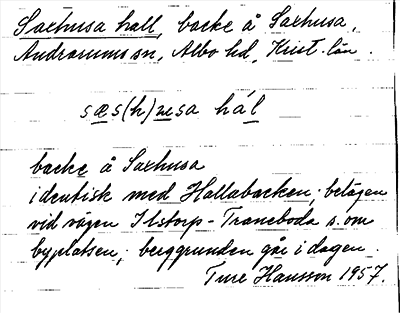 Saxhusa hall, backe å Saxhusa,
Andrarums sn, Albo hd, Krist. län.
sæs(h)usa hál
backe å Saxhusa
identisk med Hallabacken; belägen
vid vägen Ilstorp-Traneboda s. om
byplatsen; berggrunden går i dagen.
Ture Hansson 1957.